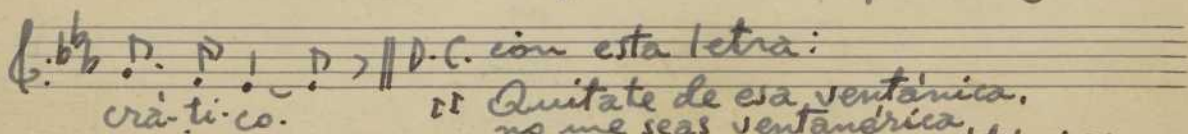 D.C. con esta letra:
crá-ti-co. " Quítate de esa ventánica,
no me seas ventanérica,